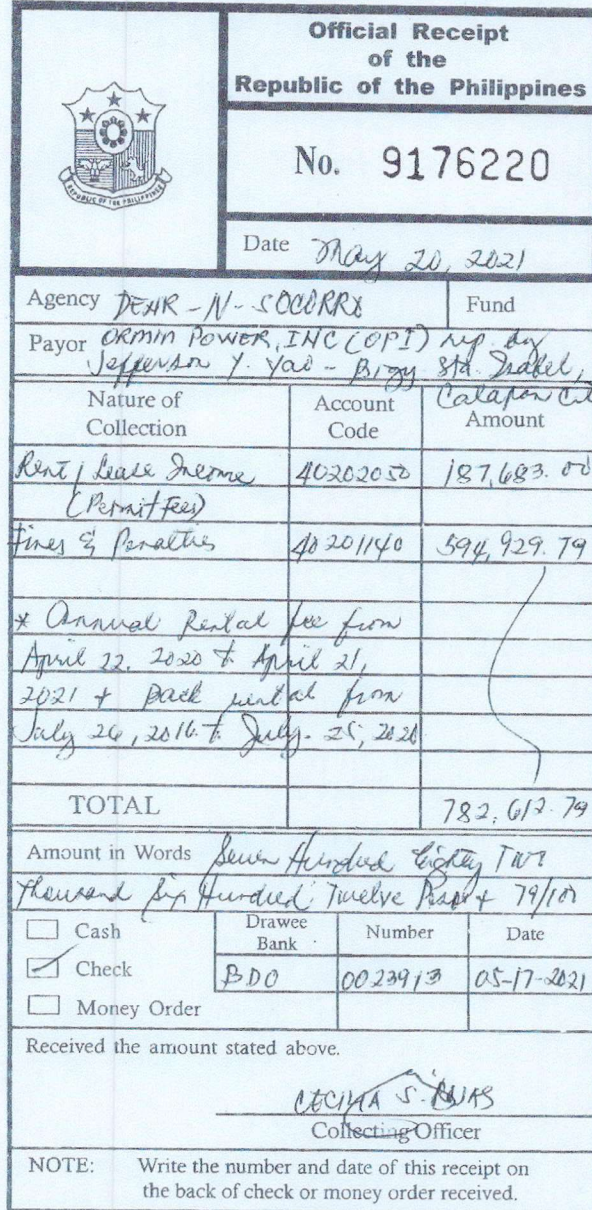 Official Receipt
of the
Republic of the Philippines
REPUBLIC OF THE PHILIPPINES
No. 9176220
Date May 20, 2021
Agency DENR-N-SOCORRO Fund
Payor ORMIN POWER, INC (OPI) rep. by
Jefferson Y. Yao - Brgy Sta. Isabel,
Calapan City
Nature of Collection Account Code Amount
Rent / Lease Income 40202050 187,683.00
(Permit Fees)
Fines & Penalties 40201140 594,929.79
* Annual Rental fee from
April 22, 2020 to April 21,
2021 + Back rental from
July 26, 2016 to July 25, 2020
TOTAL 782,612.79
Amount in Words Seven Hundred Eighty Two
Thousand Six Hundred Twelve Pesos & 79/100
Cash Drawee Bank Number Date
Check BDO 0023913 05-17-2021
Money Order
Received the amount stated above.
CECILIA S.
Collecting Officer
NOTE: Write the number and date of this receipt on
the back of check or money order received.